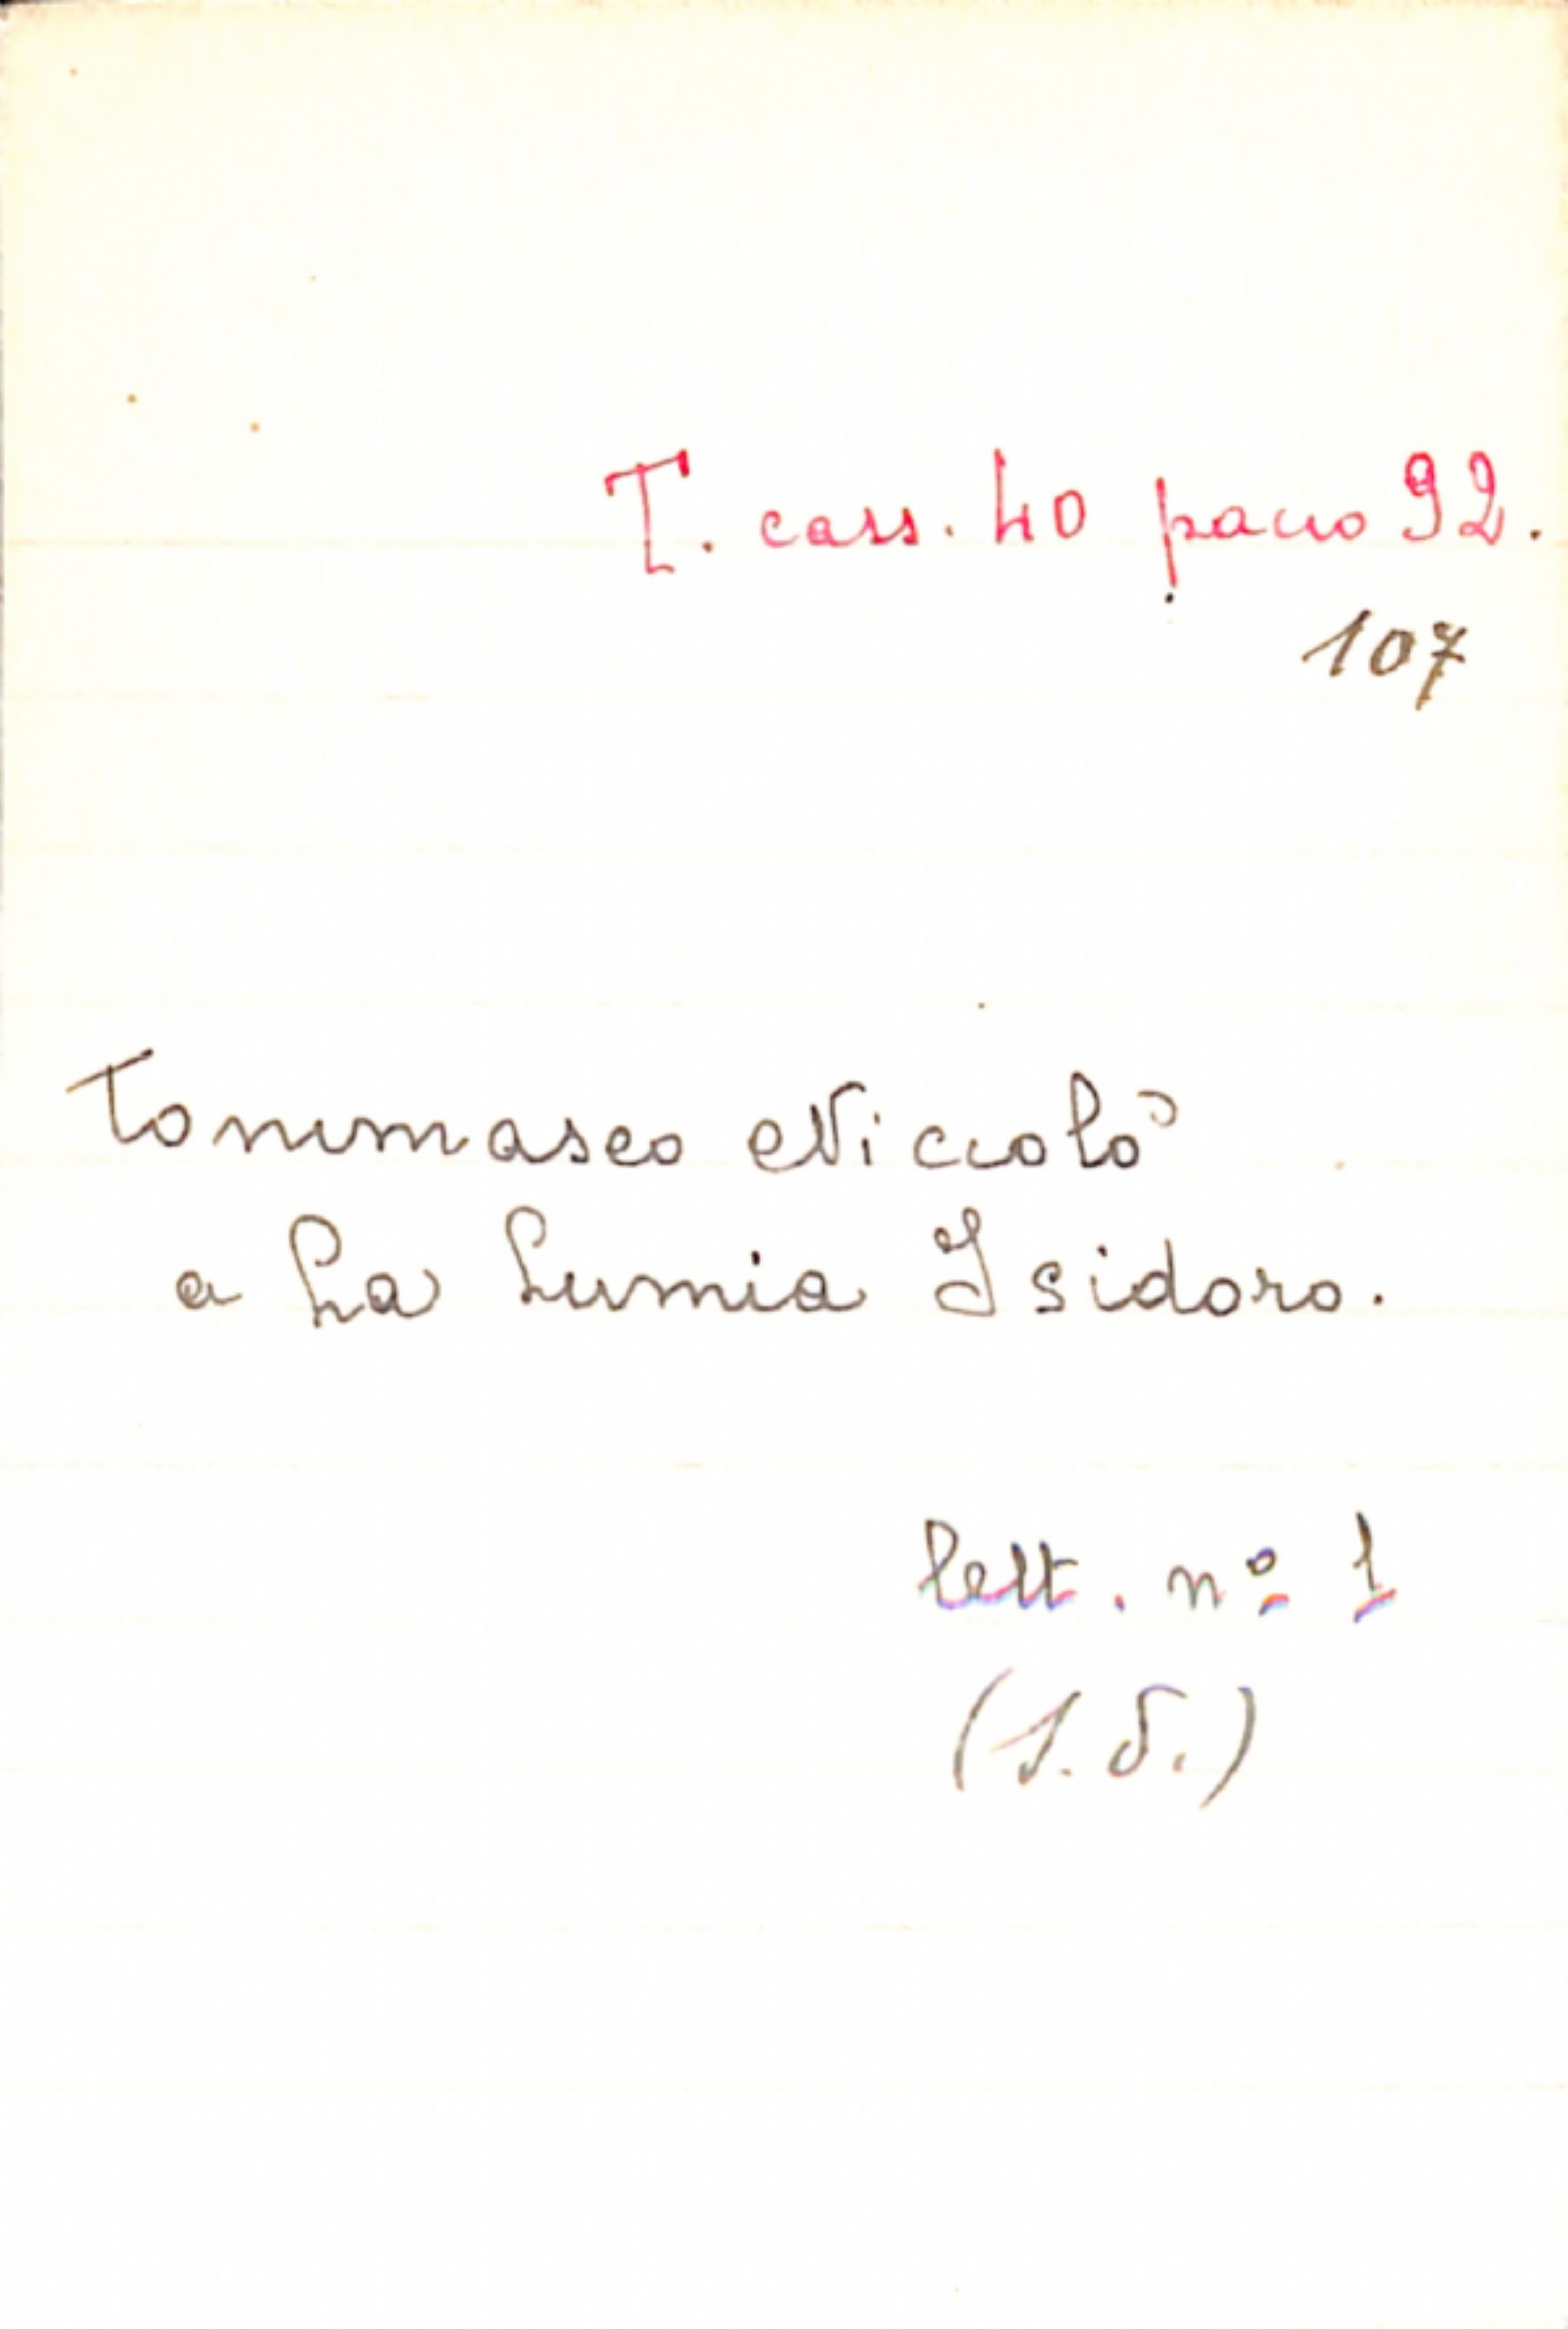 T. cass. 40 pacco 92.
107
Tommaseo Niccolò
a La Lumia Isidoro.
lett. nº 1
(s.d.)